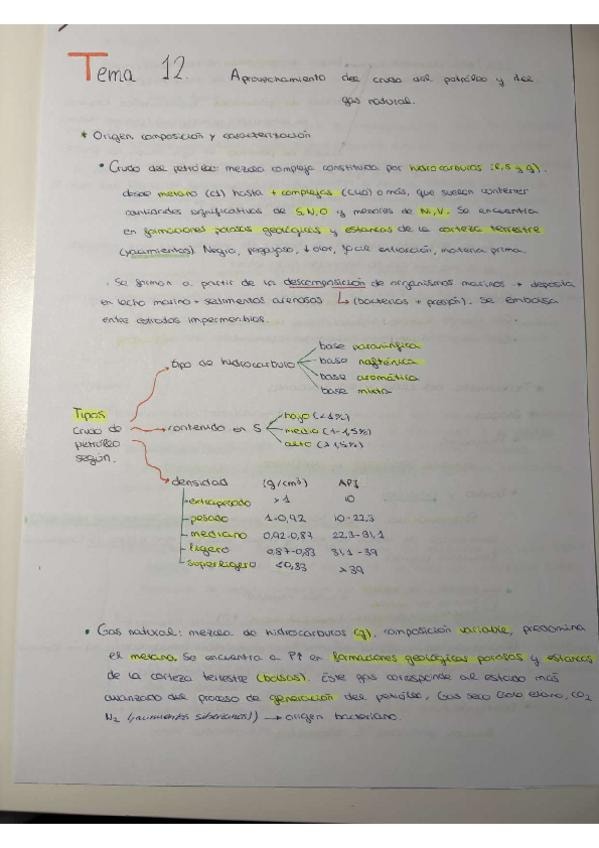 Tema 12. Aprovechamiento del crudo del petróleo y del
gas natural.
* Origen, composición y caracterización
• Crudo del petróleo: mezcla compleja constituida por hidrocarburos (l, s y g).
desde metano (C1) hasta + complejas (C40) o más, que suelen contener
cantidades significativas de S, N, O y menores de Ni, V. Se encuentra
en formaciones porosas geológicas y estancas de la corteza terrestre
(yacimientos). Negro, pegajoso, ↓ olor, fácil extracción, materia prima.
• Se forman a partir de la descomposición de organismos marinos → deposita
en lecho marino + sedimentos arenosas ↳ (bacterias + presión). Se embolsa
entre estratos impermeables.
tipo de hidrocarburo
base paranínfica
base nafténica
base aromática
base mixta
Tipos
Crudo de
petróleo
según.
contenido en S
bajo (<1%)
medio (1-1,5%)
alto (>1,5%)
densidad (g/cm³) API
extrapesado >1 10
pesado 1-0,92 10-22,3
mediano 0,92-0,87 22,3-31,1
ligero 0,87-0,83 31,1-39
superligero <0,83 >39
• Gas natural: mezcla de hidrocarburos (g), composición variable, predomina
el metano. Se encuentra a P↑ en formaciones geológicas porosas y estancas
de la corteza terrestre (bolsas). Este gas corresponde al estado más
avanzado del proceso de generación del petróleo, Gas seco (solo etano, CO2
N2 (yacimientos siberianos)) → origen bacteriano.